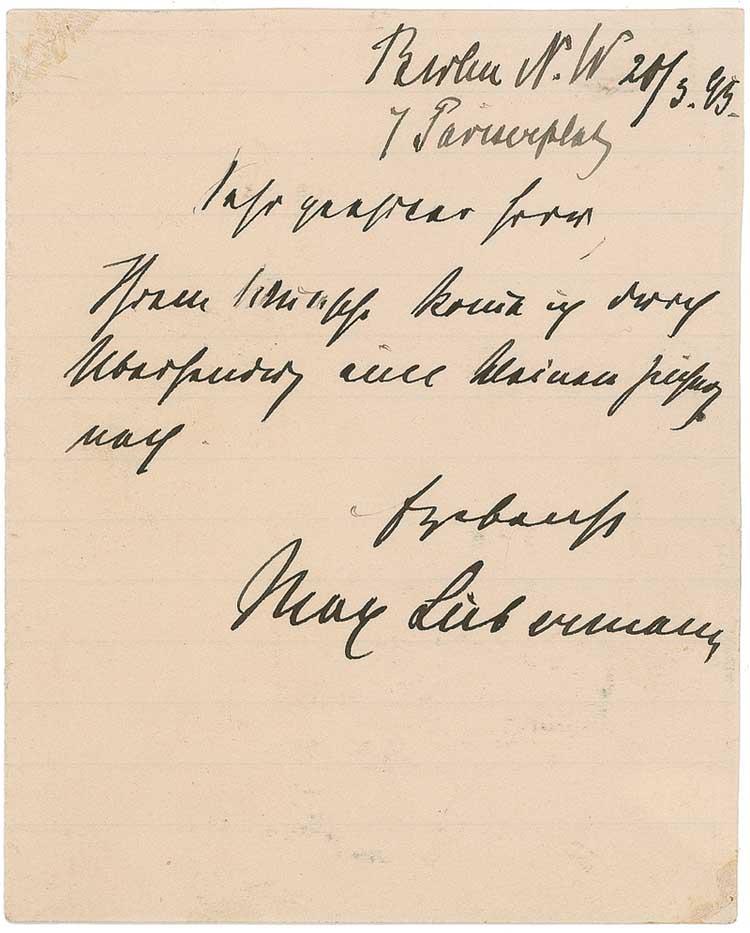 Berlin N.W 20/3.95.
7 Pariserplatz
Sehr geehrter Herr,
Ihrem Wunsche kome ich durch
Übersendung einer kleinen
nach.
Ergebenst
Max Liebermann